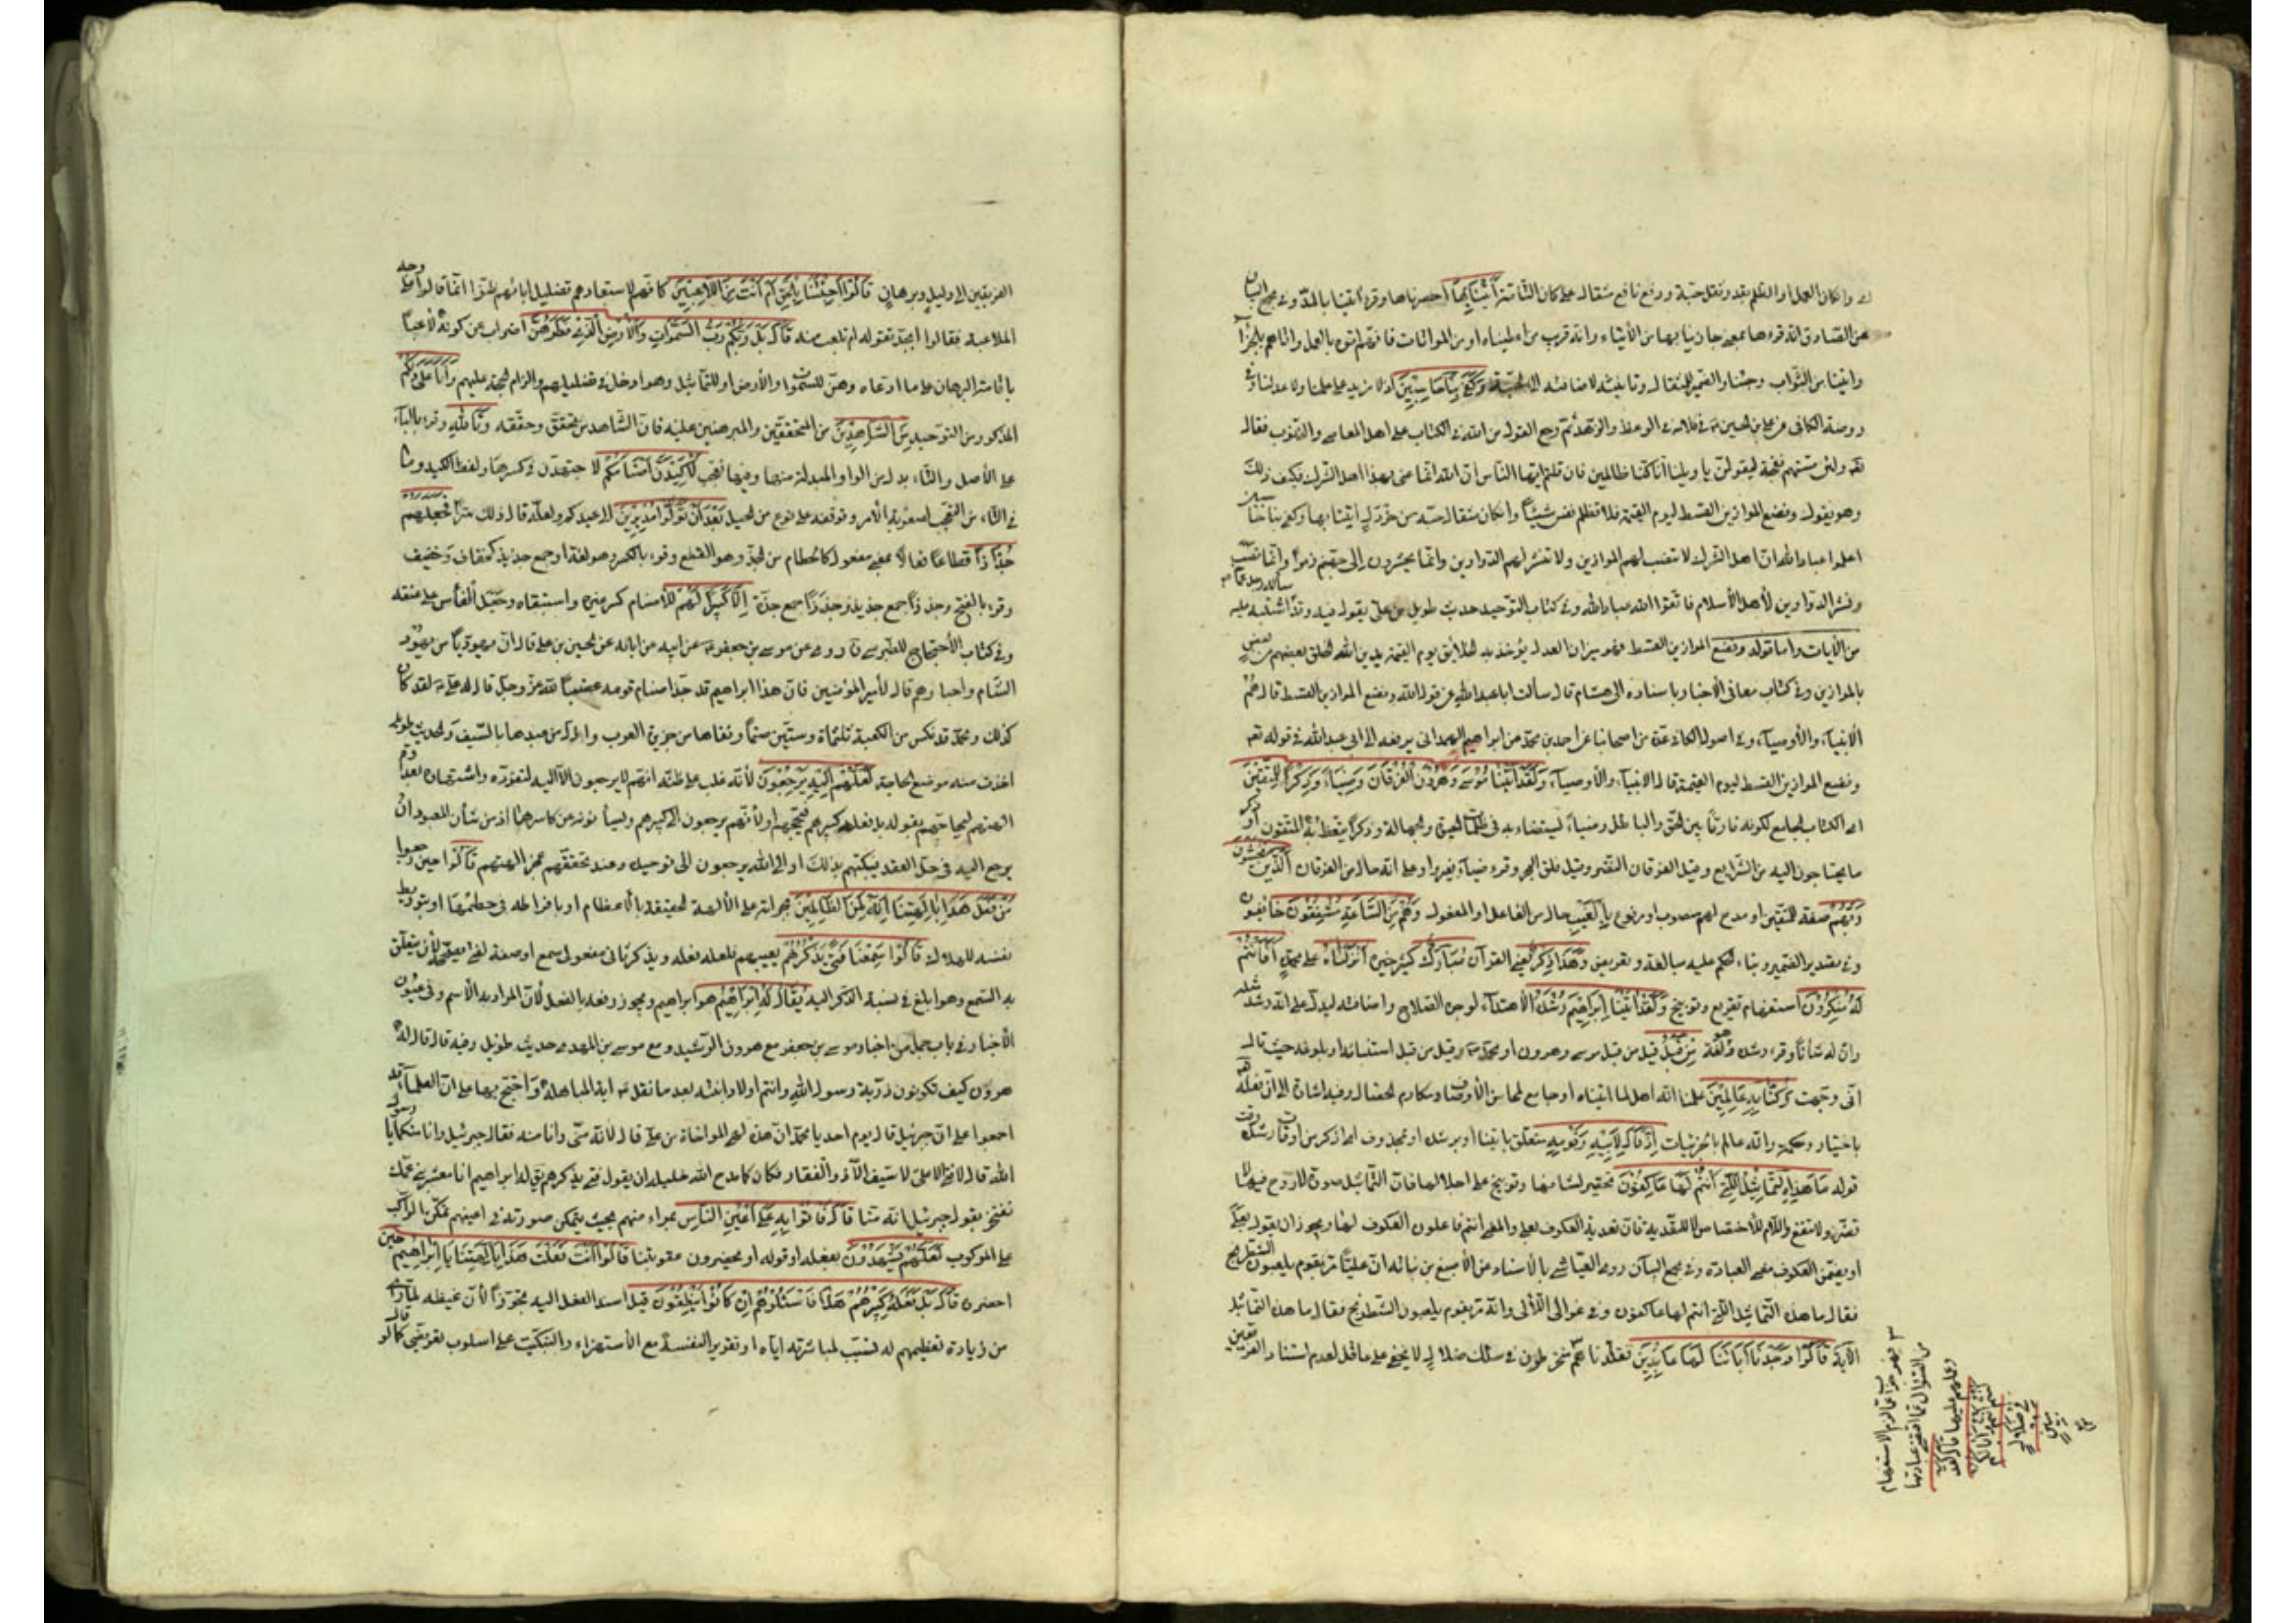 اى وان كان العمل او الظلم مقدار ثقل حبة ورفع نافع مثقال على كان التامة أَتَيْنا بِها احضرناها وقرء آتينا بالمدّ وفى مجمع البيان
عن الصادق انه قرءها بمعنى جازينا بها من الأيتاء وانه قريب من اعطيناه او من المواتات فانهم اتوه بالعمل واتاهم بالجزآء
واتينا من الثّواب وجئنا والضمير للمثقال وتانيثه لاضافته الى الحبة وَكَفى بِنا حاسِبِينَ اذ لا مزيد على علمنا ولا عدلنا وفى
روضة الكافى عن على بن الحسين ع فى كلامه فى الوعظ والزهد ثم رجع القول من الله فى الكتاب على اهل المعاصى والذنوب فقال
تع ولئن مستهم نفحة ليقولن يا ويلنا انا كنا ظالمين فان قلتم ايها الناس ان الله انما عنى بهذا اهل الشرك فكيف ذلك
وهو يقول ونضع الموازين القسط ليوم القيمة فلا تظلم نفس شيئاً وان كان مثقال حبة من خردل اتينا بها وكفى بنا حاسبين
اعلموا عباد الله ان اهل الشرك لا تنصب لهم الموازين ولا تنشر لهم الدواوين وانما يحشرون إلى جهنم زمراً وانما نصب الموازين
ونشر الدواوين لأهل الأسلام فاتقوا الله عباد الله وفى كتاب التّوحيد حديث طويل عن على يقول فيه وقد اشتبه عليه
من الأيات واما قوله ونضع الموازين القسط فهو ميزان العدل يؤخذ به الخلايق يوم القيمة يدين الله الخلق بعضهم من بعض
بالموازين وفى كتاب معانى الأخبار باسناده الى هشام قال سألت ابا عبد الله عن قول الله ونضع الموازين القسط قال هم
الانبيآء والأوصيآء وفى اصول الكافى عدّة من اصحابنا عن احمد بن محمد عن ابراهيم الهمدانى يرفعه الى ابى عبد الله فى قوله تع
ونضع الموازين القسط ليوم القيمة قال الانبيآء والأوصيآء وَلَقَدْ آتَيْنا مُوسى وَهارُونَ الْفُرْقانَ وَضِياءً وَذِكْراً لِلْمُتَّقِينَ
اى الكتاب الجامع لكونه فارقاً بين الحق والباطل وضياءً ليستضاء به فى ظلمات الحيرة والجهالة وذكراً يتعظ به المتقون او ذكر
ما يحتاجون اليه من الشّرايع وقيل الفرقان النصر وقيل فلق البحر وقرء ضيآء بغير واو على انه حال من الفرقان الَّذِينَ يَخْشَوْنَ
رَبَّهُمْ صفة للمتقين او مدح لهم منصوب او مرفوع بِالْغَيْبِ حال من الفاعل او المفعول وَهُمْ مِنَ السَّاعَةِ مُشْفِقُونَ خائفون
وفى تقدير الضمير وبناء الحكم عليه مبالغة وتعريض وَهذا ذِكْرٌ يعنى القرآن مُبارَكٌ كثير خيره أَنْزَلْناهُ على محمد أَفَأَنْتُمْ
لَهُ مُنْكِرُونَ استفهام تقريع وتوبيخ وَلَقَدْ آتَيْنا إِبْراهِيمَ رُشْدَهُ الاهتدآء لوجوه الصلاح واضافته ليدل على انه رشد مثله
وان له شأناً وقرء رشده وهو لغة مِنْ قَبْلُ قيل من قبل موسى وهرون او محمد ص وقيل من قبل استنبائه او بلوغه حيث قال
انى وجهت وَكُنَّا بِهِ عالِمِينَ علمنا انه اهل لما اتيناه او جامع لمحاسن الأوصاف ومكارم الخصال وفيه اشارة الى ان فعله تع
باختيار وحكمة وانه عالم بالجزئيات إِذْ قالَ لِأَبِيهِ وَقَوْمِهِ متعلق باتينا او برشده او بمحذوف اى اذكر من اوقات رشده وقت
قوله ما هذِهِ التَّماثِيلُ الَّتِي أَنْتُمْ لَها عاكِفُونَ تحقير لشانها وتوبيخ على اجلالها فان التّماثيل صورة لا روح فيها لا
تضر ولا تنفع واللام للأختصاص لا للتعدية فان تعدية العكوف بعلى والمعنى انتم فاعلون العكوف لها ويجوز ان يؤول بعلى
او يضمن العكوف معنى العبادة وفى مجمع البيان روى العياشى بالأسناد عن الأصبغ بن نباته ان علياً مر بقوم يلعبون الشطرنج
فقال ما هذه التماثيل التى انتم لها عاكفون وفى عوالى اللآلى وانه مر بقوم يلعبون الشطرنج فقال ما هذه التماثيل
الآية قالُوا وَجَدْنا آباءَنا لَها عابِدِينَ فقلدناهم منخرطون فى سلك ضلال لا يخفى على عاقل لعدم استناد الفريقين
فهو جواب عما لزم الاستفهام
من السؤال عما اقتضى عبادتها
وحملهم عليها قالَ لَقَدْ
كُنْتُمْ أَنْتُمْ وَآباؤُكُمْ
فِي ضَلالٍ
مُبِينٍ
الفريقين الى دليل وبرهان قالُوا أَجِئْتَنا بِالْحَقِّ أَمْ أَنْتَ مِنَ اللَّاعِبِينَ كانهم لاستبعادهم تضليل ابائهم ظنوا انما قاله على وجه
الملاعبة فقالوا ابجد تقوله ام تلعب منه قالَ بَلْ رَبُّكُمْ رَبُّ السَّماواتِ وَالْأَرْضِ الَّذِي فَطَرَهُنَّ اضراب عن كونه لاعباً
باقامة البرهان على ما ادعاه وهنّ للسّموات والأرض او للتّماثيل وهو ادخل فى تضليلهم والزام الحجة عليهم وَأَنَا عَلى ذلِكُمْ
المذكور من التوحيد مِنَ الشَّاهِدِينَ من المتحققين والمبرهنين عليه فان الشاهد من تحقق وحققه وَتَاللَّهِ وقرء بالبآء
على الأصل والتّاء بدل من الواو المبدلة منها وفيها تعجب لَأَكِيدَنَّ أَصْنامَكُمْ لاجتهدن فى كسرها ولفظ الكيد وما
فى التّاء من التعجب لصعوبة الأمر وتوقفه على نوع من الحيل بَعْدَ أَنْ تُوَلُّوا مُدْبِرِينَ الى عيدكم ولعله قال ذلك سراً فَجَعَلَهُمْ
جُذاذاً قطاعاً فعال بمعنى مفعول كالحطام من الجذ وهو القطع وقرء بالكسر وهو لغة او جمع جذيذ كخفاف وخفيف
وقرء بالفتح وجذذاً جمع جذيذ وجذذاً جمع جذة إِلَّا كَبِيراً لَهُمْ للأصنام كسر غيره واستبقاه وجعل الفأس على عنقه
وفى كتاب الأحتجاج للطبرسى ره روى عن موسى بن جعفر ع عن ابيه عن ابائه عن الحسين بن على قال ان يهودياً من يهود
الشّام واحبارهم قال لأمير المؤمنين فان هذا ابراهيم قد جذ اصنام قومه غضباً لله عز وجل قال له على ع لقد كان
كذلك ومحمد قد نكس من الكعبة ثلثماة وستين صنماً ونفاها من جزيرة العرب واذل من عبدها بالسّيف والحديث طويل
اخذت منه موضع الحاجة لَعَلَّهُمْ إِلَيْهِ يَرْجِعُونَ لأنه غلب على ظنه انهم لا يرجعون الا اليه لتفرده واشتهاره بعداوة
الهتهم فيحاجهم بقوله بل فعله كبيرهم فيحجهم او لأنهم يرجعون الى كبيرهم فيسألونه عن كاسرها اذ من شأن المعبود ان
يرجع اليه فى حل العقد فيبكتهم بذلك او الى الله يرجعون الى توحيده عند تحققهم عجز الهتهم قالُوا حين رجعوا
مَنْ فَعَلَ هذا بِآلِهَتِنا إِنَّهُ لَمِنَ الظَّالِمِينَ بجرأته على الألهة الحقيقة بالأعظام او بافراطه فى حطمها او بتوريط
نفسه للهلاك قالُوا سَمِعْنا فَتًى يَذْكُرُهُمْ يعيبهم فلعله فعله ويذكر ثانى مفعولى سمع او صفة لفتى مصححة لأن يتعلق
به السّمع وهو ابلغ فى نسبة الذكر اليه يُقالُ لَهُ إِبْراهِيمُ هو ابراهيم ويجوز رفعه بالفعل لأن المراد به الأسم وفى عيون
الأخبار فى باب جمل من اخبار موسى بن جعفر مع هرون الرّشيد ومع موسى بن المهدى حديث طويل وفيه قال قال له
هرون كيف تكونون ذرية رسول الله وانتم اولاد ابنته بعد ما نقل ع اية المباهلة واحتج بها على ان العلمآء قد
اجمعوا على ان جبرئيل قال يوم احد يا محمد ان هذه لهى المواساة من على قال لانه منى وانا منه فقال جبرئيل وانا منكما يا رسول
الله قال لا فتى الا على لا سيف الا ذو الفقار فكان كما مدح الله خليله اذ يقول فتى يذكرهم يقال له ابراهيم انا معشر بنى عمك
نفتخر بقول جبرئيل انه منا قالُوا فَأْتُوا بِهِ عَلى أَعْيُنِ النَّاسِ بمراى منهم بحيث يتمكن صورته فى اعينهم تمكن الراكب
على المركوب لَعَلَّهُمْ يَشْهَدُونَ بفعله او قوله او يحضرون عقوبتنا قالُوا أَأَنْتَ فَعَلْتَ هذا بِآلِهَتِنا يا إِبْراهِيمُ حين
احضره قالَ بَلْ فَعَلَهُ كَبِيرُهُمْ هذا فَسْئَلُوهُمْ إِنْ كانُوا يَنْطِقُونَ قيل اسند الفعل اليه تجوزاً لأن غيظه لما راى
من زيادة تعظيمهم له تسبب لمباشرته اياه او تقرير النفسه مع الأستهزاء والتبكيت على اسلوب تعريضى كما لو قال